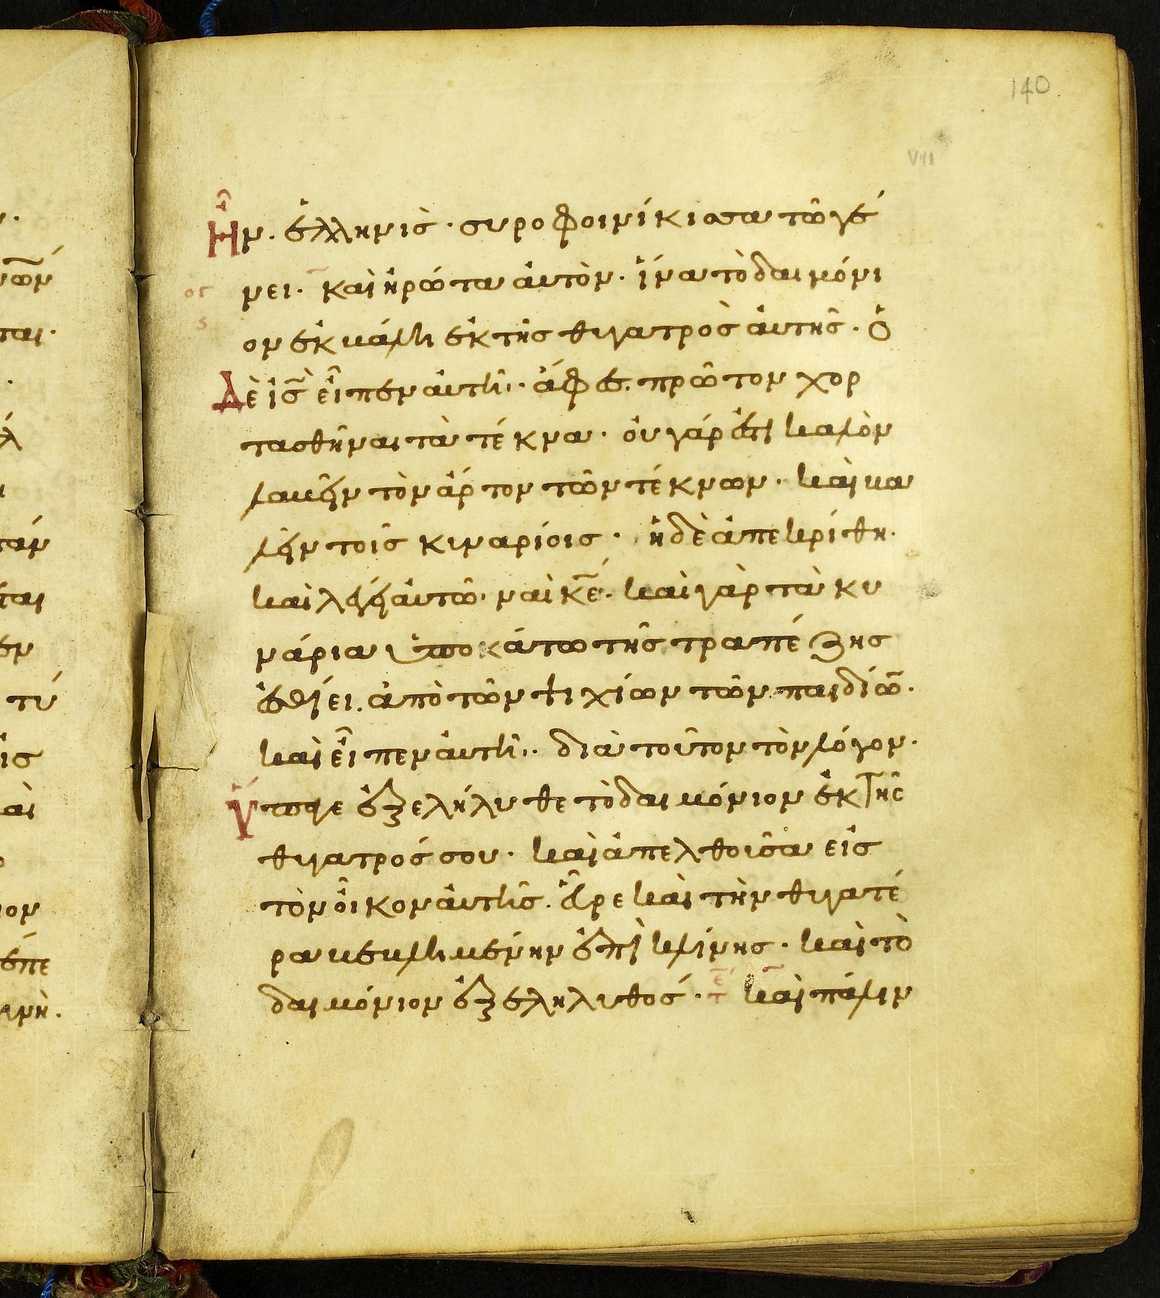 140
VII
Ἦν. ἑλληνὶς · συροφοινίκισσα τῶ γέ
νει · καὶ ἠρώτα αὐτὸν · ἵνα τὸ δαιμόνι
ον ἐκβάλη ἐκ τῆς θυγατρὸς αὐτῆς · ὁ
Δὲ ἰς̅ εἶπεν αὐτῆ · ἄφες. πρῶτον χορ
τασθῆναι τὰ τέκνα · οὐ γάρ ἐστι καλὸν
λαβεῖν τὸν ἄρτον τῶν τέκνων · καὶ βα
λεῖν τοῖς κυναρίοις · ἡ δὲ ἀπεκρίθη.
καὶ λέγει αὐτῶ · ναὶ κ̅ε̅ · καὶ γὰρ τὰ κυ
νάρια ὑποκάτω τῆς τραπέζης
ἐσθίει. ἀπὸ τῶν ψιχίων τῶν παιδίω̅ ·
καὶ εἶπεν αὐτῆ · διὰ τοῦτον τὸν λόγον ·
Ὕπαγε ἐξελήλυθε τὸ δαιμόνιον ἐκ τῆς
θυγατρός σου · καὶ ἀπελθοῦσα εἰς
τὸν οἶκον αὐτῆς. εὗρε καὶ τὴν θυγατέ
ρα βεβλημένην ἐπὶ κλίνης · καὶ τὸ
δαιμόνιον ἐξεληλυθός · καὶ πάλιν